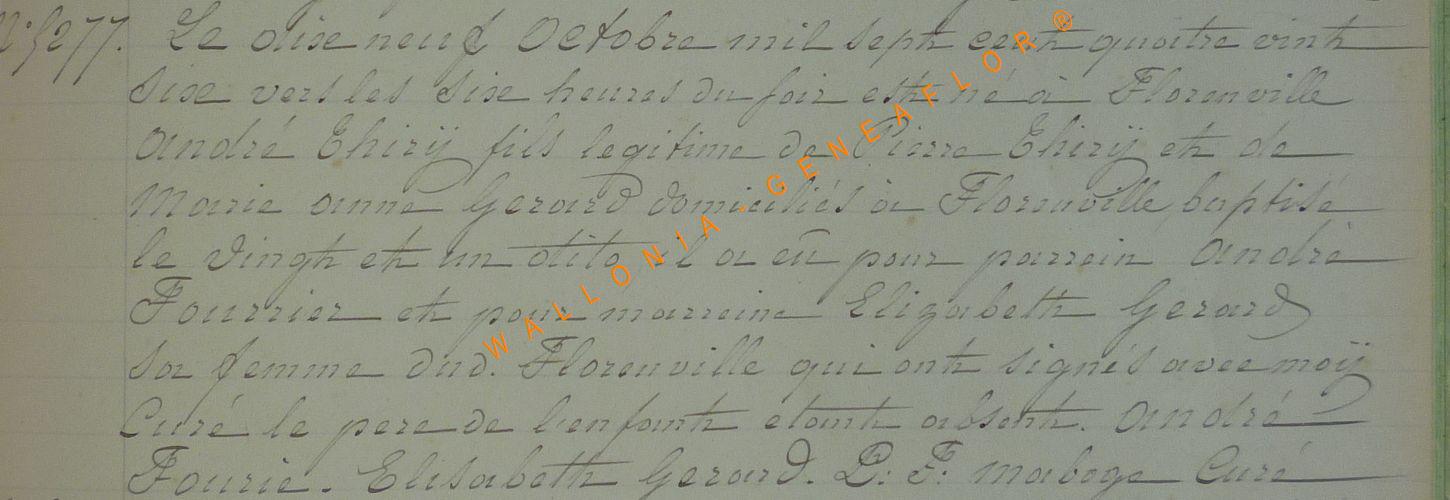 N° 5277. Le dixe neuf Octobre mil sept cent quatre vint
sixe vers les sixe heures du soir est né à Florenville
André Thirÿ fils legitime de Pierre Thirÿ et de
Marie anne Gerard domiciliés à Florenville, baptisé
le vingt et un dito il a eû pour parrein André
Fourrier et pour marreine Elizabeth Gerard
sa femme dud. Florenville qui ont signés avec moÿ
Curé le pere de l'enfant etant absent. André
Fourie. Elisabeth Gerard. P. F. Maboge Curé
WALLONIA - GENEAFLOR®